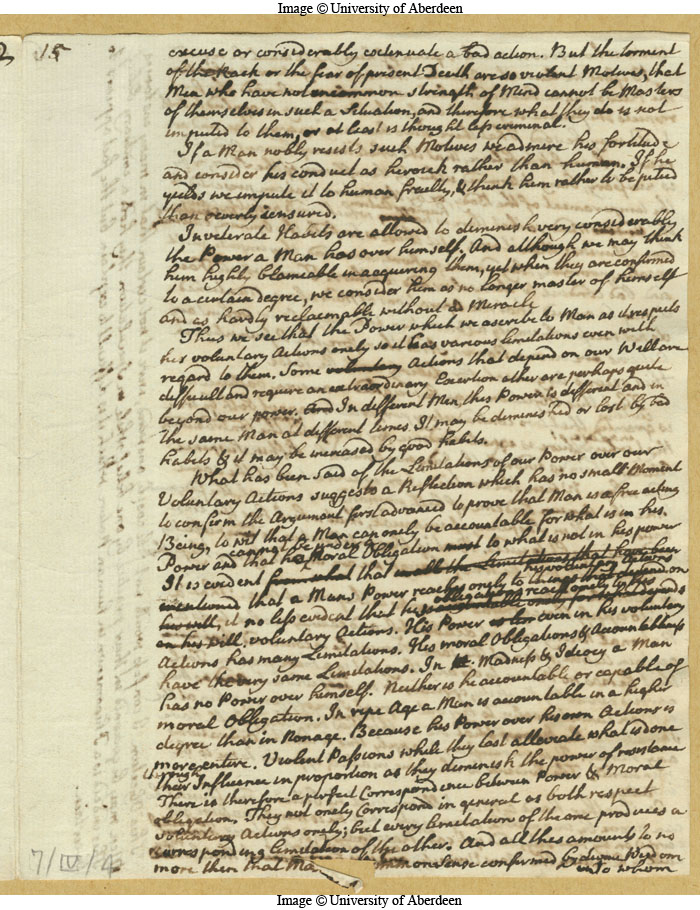 Image © University of Aberdeen
15
excuse or considerably extenuate a bad action. But the torment
of the Rack or the fear of present Death are so violent Motives, that
Men who have not uncommon strength of Mind cannot be Masters
of themselves in such a Situation, and therefore what they do is not
imputed to them, or at least is thought less criminal.
If a Man nobly resists such Motives we admire his fortitude
and consider his conduct as heroick rather than human. If he
yields we impute it to human frailty, & think him rather to be pitied
than severly censured.
Inveterate Habits are allowed to diminish very considerably
the Power a Man has over himself. And although we may think
him highly blameable in acquiring them, yet when they are confirmed
to a certain degree, we consider him as no longer master of himself
and as hardly reclaimable without a Miracle
Thus we see that the Power which we ascribe to Man as it respects
his voluntary Actions onely so it has various Limitations even with
regard to them. Some voluntary Actions that depend on our Will are
difficult and require an extraordinary Exertion other are perhaps quite
beyond our power. And In different Men this Power is different and in
the same Man at different times It may be diminished or lost by bad
habits & it may be increased by good habits.
What has been said of the Limitations of our Power over our
Voluntary Actions suggests a Reflection which has no small Moment
to confirm the Argument first advanced to prove that Man is a free acting
Being, to wit that a Man can onely be accountable for what is in his
Power and that he cannot be under a Moral Obligation to what is not in his power
It is evident from what that all the Limitations that have been
mentioned that a Mans Power reaches onely to his voluntary Actions things that depend on
his will, it no less evident that his obligation reach only to his
on his Will, voluntary Actions. His Power even in his voluntary
Actions has many Limitations. His moral Obligations & Accountableness
have the very same Limitations. In Madness & Ideocy a Man
has no Power over himself. Neither is he accountable or capable of
moral Obligation. In ripe Age a Man is accountable in a higher
degree than in Nonage. Because his Power over his own Actions is
more entire. Violent Passions while they last alleviate what is done
through their Influence in proportion as they diminish the power of resistance
There is therefore a perfect Correspondence between Power & Moral
obligation. They not onely Correspond in general as both respect
voluntary Actions onely; but every limitation of the one produces a
corresponding limitation of the other. And all this amounts to no
more than that Ma mon Sense confirmed by divine Wisdom
to whom
7/IV/4
Image © University of Aberdeen